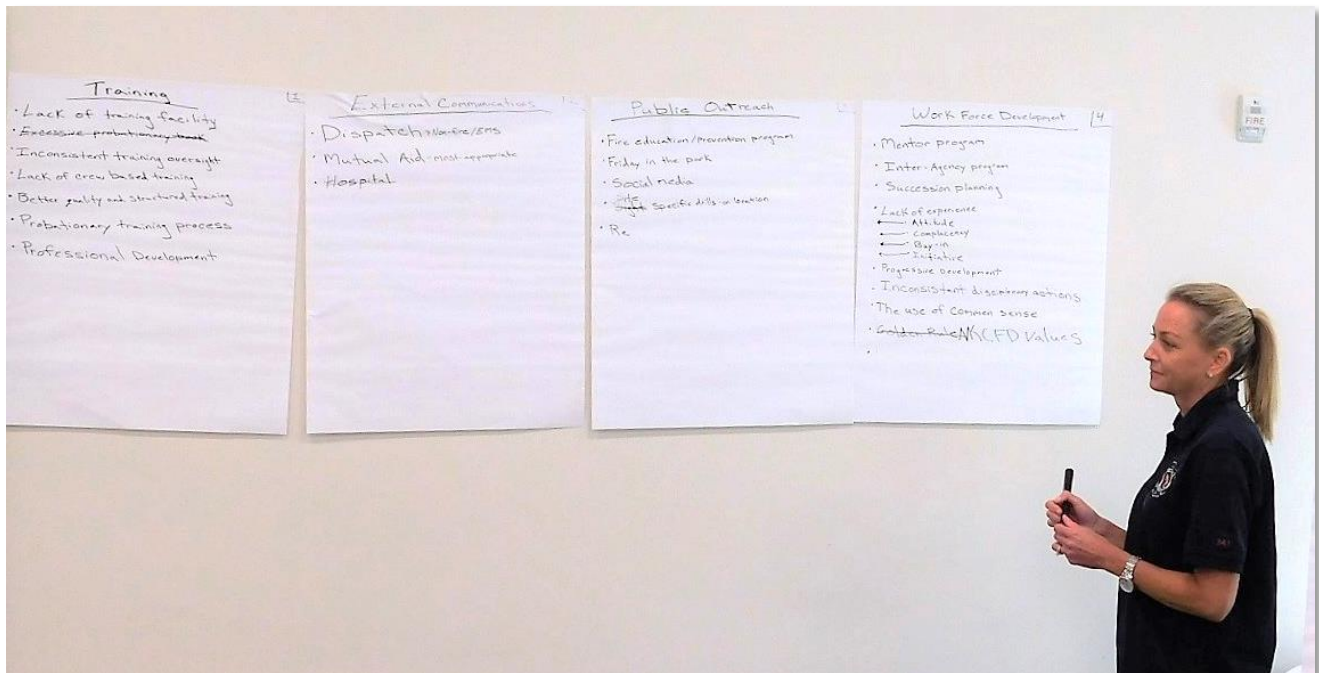 Training
· Lack of training facility
· Excessive probationary book
· Inconsistent training oversight
· Lack of crew based training
· Better quality and structured training
· Probationary training process
· Professional Development
External Communications
· Dispatch Non-fire/EMS
· Mutual Aid - most appropriate
· Hospital
Public Outreach
· Fire education/prevention program
· Friday in the park
· Social media
· Site specific drills on location
· Re
Work Force Development 4
· Mentor program
· Inter-Agency program
· Succession planning
· Lack of experience
Attitude
Complacency
Buy-in
Initiative
· Progressive Development
· Inconsistent disciplinary actions
· The use of common sense
· Golden Rule NKCFD Values
FIRE